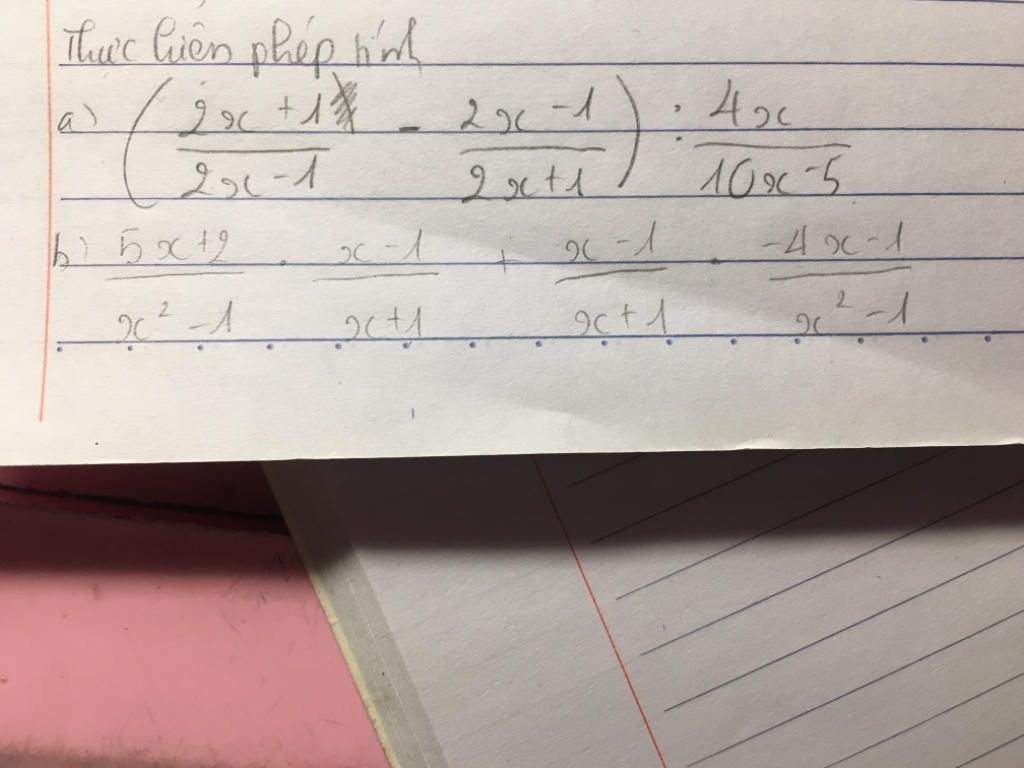 Thực hiện phép tính
a) ( \frac{2x+1}{2x-1} - \frac{2x-1}{2x+1} ) : \frac{4x}{10x-5}
b) \frac{5x+2}{x^2-1} . \frac{x-1}{x+1} + \frac{x-1}{x+1} . \frac{-4x-1}{x^2-1}